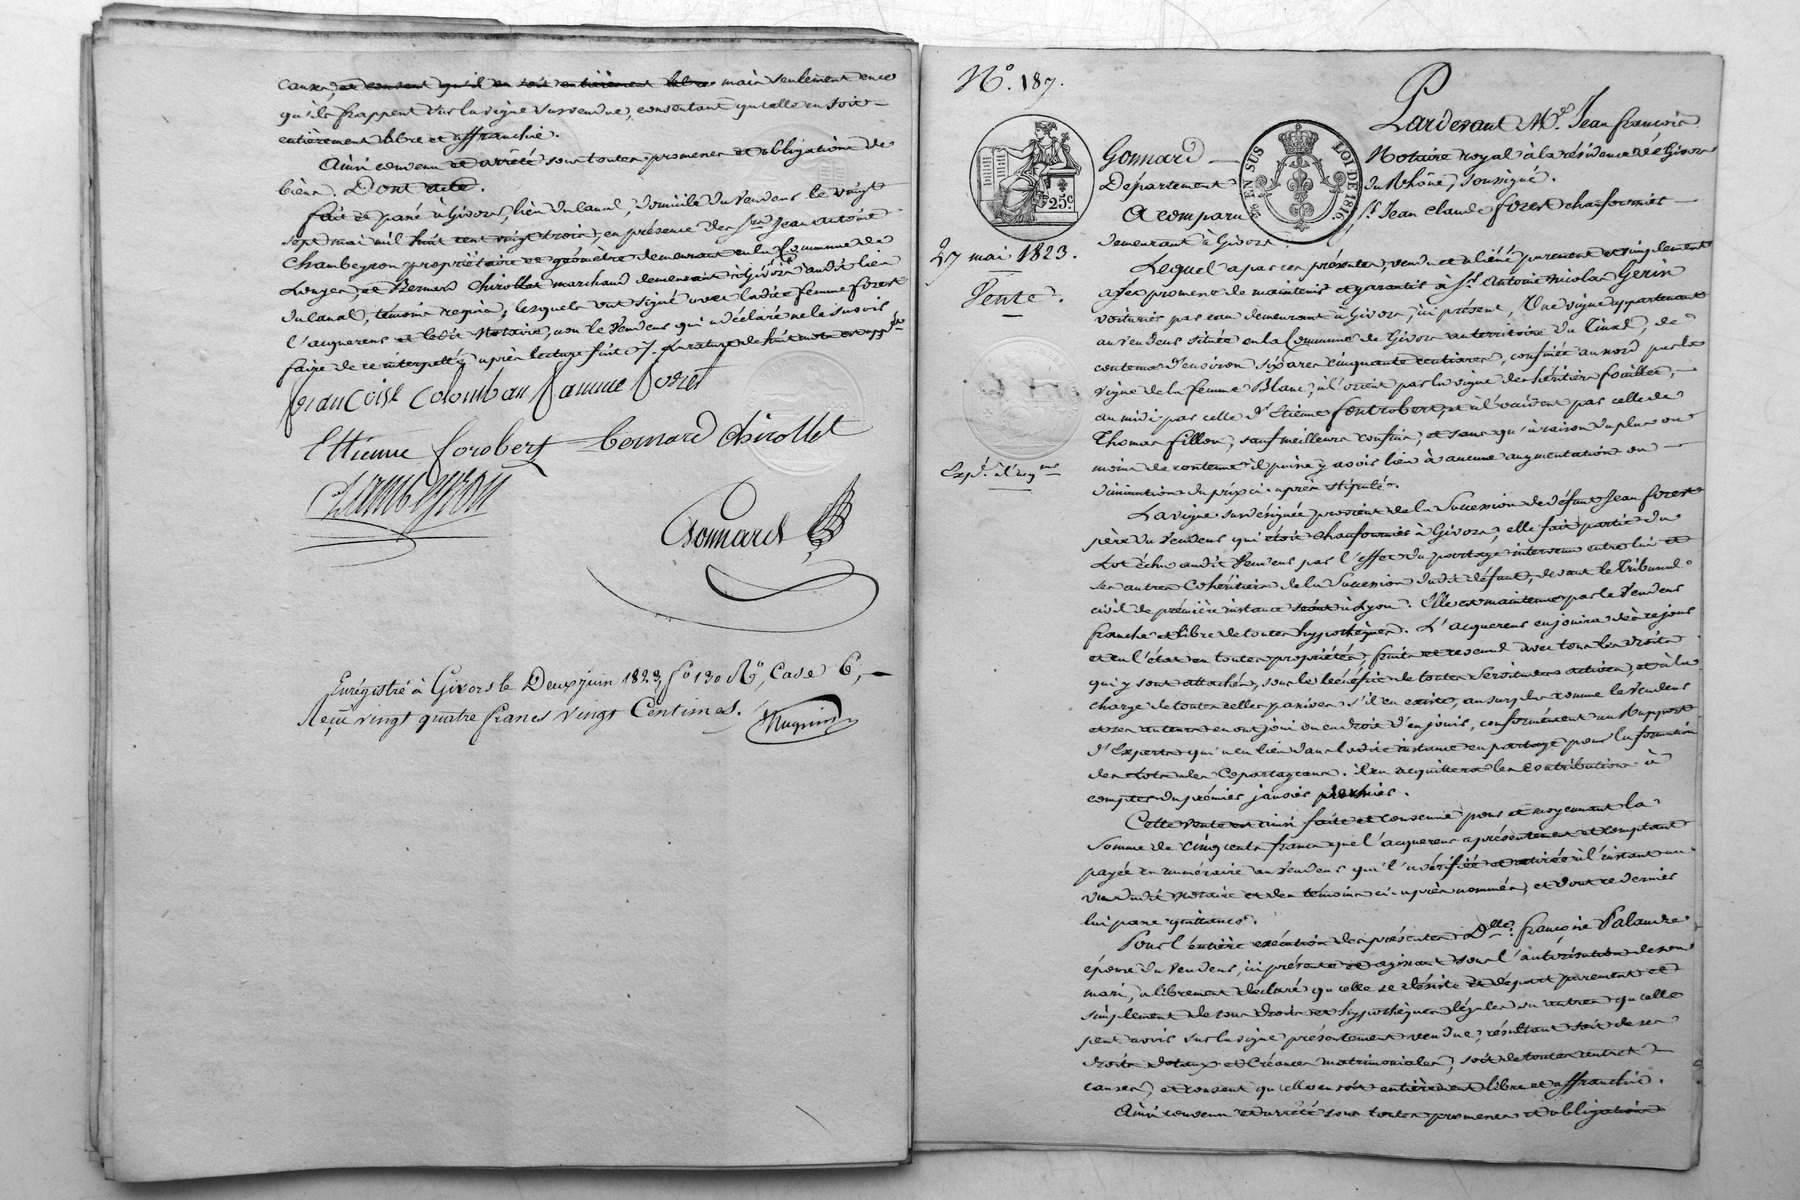 causes, et consent qu'il en soit entièrement libre mais seulement en ce
qu'ils frappent sur la vigne susvendue, consentant qu'elle en soit
entièrement libre et affranchie.
Ainsi convenu et arrêté sous toutes promesses et obligations de
biens. Dont acte.
fait et passé à Givors, lieu du canal, domicile du vendeur le vingt
sept mai mil huit cent vingt trois, en présence des Srs Jean Antoine
Chambeyron propriétaire et géomètre demeurant en la Commune de
Longes, et Bernard Chirollet marchand demeurant à Givors audit lieu
du Canal, témoins requis, lesquels ont signé avec ladite femme forest
l'acquereur et ledit Notaire, non le Vendeur qui a déclaré ne le savoir
faire de ce interpellé après lecture faite. Rature de huit mots
françoise Colomban famme Foret
Ettienne forobert Bernard Chirollet
Chambeyron
Gonnard
Enrégistré à Givors le Deux juin 1823, fo 130 Ro, Case 6,
Reçu vingt quatre francs vingt Centimes.
No. 187.
Pardevant Me. Jean françois
Gonnard Notaire royal à la résidence de Givors
Département du Rhône, soussigné.
A comparu Sr. Jean Claude forest chaufournier
demeurant à Givors.
EN SUS LOI DE 1816
25c
27 mai 1823.
Vente.
Lequel a par ces présentes, vendu et aliéné purement et simplement
avec promesse de maintenir et garantir à Sr. Antoine Nicolas Gerin
voiturier par eau demeurant à Givors, ici présent, Une vigne appartenant
au vendeur située en la Commune de Givors au territoire du Cinal, de
contenue d'environ six ares cinquante centiares, confinée au nord par la
vigne de la femme Blanc, à l'orient par la vigne des héritiers fouillet,
au midi par celle d'Etienne fontrobert, et à l'occident par celle de
Thomas fillon, sauf meilleurs confins, et sans qu'à raison du plus ou
moins de contenue il puisse y avoir lieu à aucune augmentation ou
diminution du prix ci-après stipulé.
La vigne susdésignée provient de la Succession de défunt Jean forest
père du Vendeur qui étoit chaufournier à Givors, elle fait partie du
Lot échu audit Vendeur par l'effet du partage intervenu entre lui et
ses autres Cohéritiers de la Succession dudit défunt, devant le Tribunal
civil de première instance séant à Lyon. Elle est maintenue par le Vendeur
franche et libre de toutes hypothèques. L'acquereur en jouira dès ce jour
et en l'état en toutes propriétés, fruits et revenus avec tous les droits
qui y sont attachés, sous le bénéfice de toutes Servitudes actives, et à la
charge de toutes celles passives s'il en existe, au surplus comme le Vendeur
et ses auteurs en ont joui ou eu droit d'en jouir, conformément au Rapport
d'Experts qui a eu lieu dans ladite instance en partage pour la formation
des Lots des Copartageans. il en acquittera les contributions à
compter du prémier janvier prochain.
Cette vente est ainsi faite et consentie pour et moyennant la
Somme de cinq cents francs que l'acquereur a présentement et comptant
payée en numéraire au Vendeur qui l'a vérifiée et retirée à l'instant au
vu dudit Notaire et des témoins ci-après nommés, et dont ce dernier
lui passe quittance.
Pour l'entière exécution des présentes Delle. françoise Palandre
épouse du Vendeur, ici présente et agissant sous l'autorisation de son
mari, a librement déclaré qu'elle se désiste et départ purement et
simplement de tous droits et hypothèques légales ou autres qu'elle
peut avoir sur la vigne présentement vendue, résultant soit de ses
droits dotaux et Créances matrimoniales, soit de toutes autres
causes, et consent qu'elle en soit entièrement libre et affranchie.
Ainsi convenu et arrêté sous toutes promesses et obligations